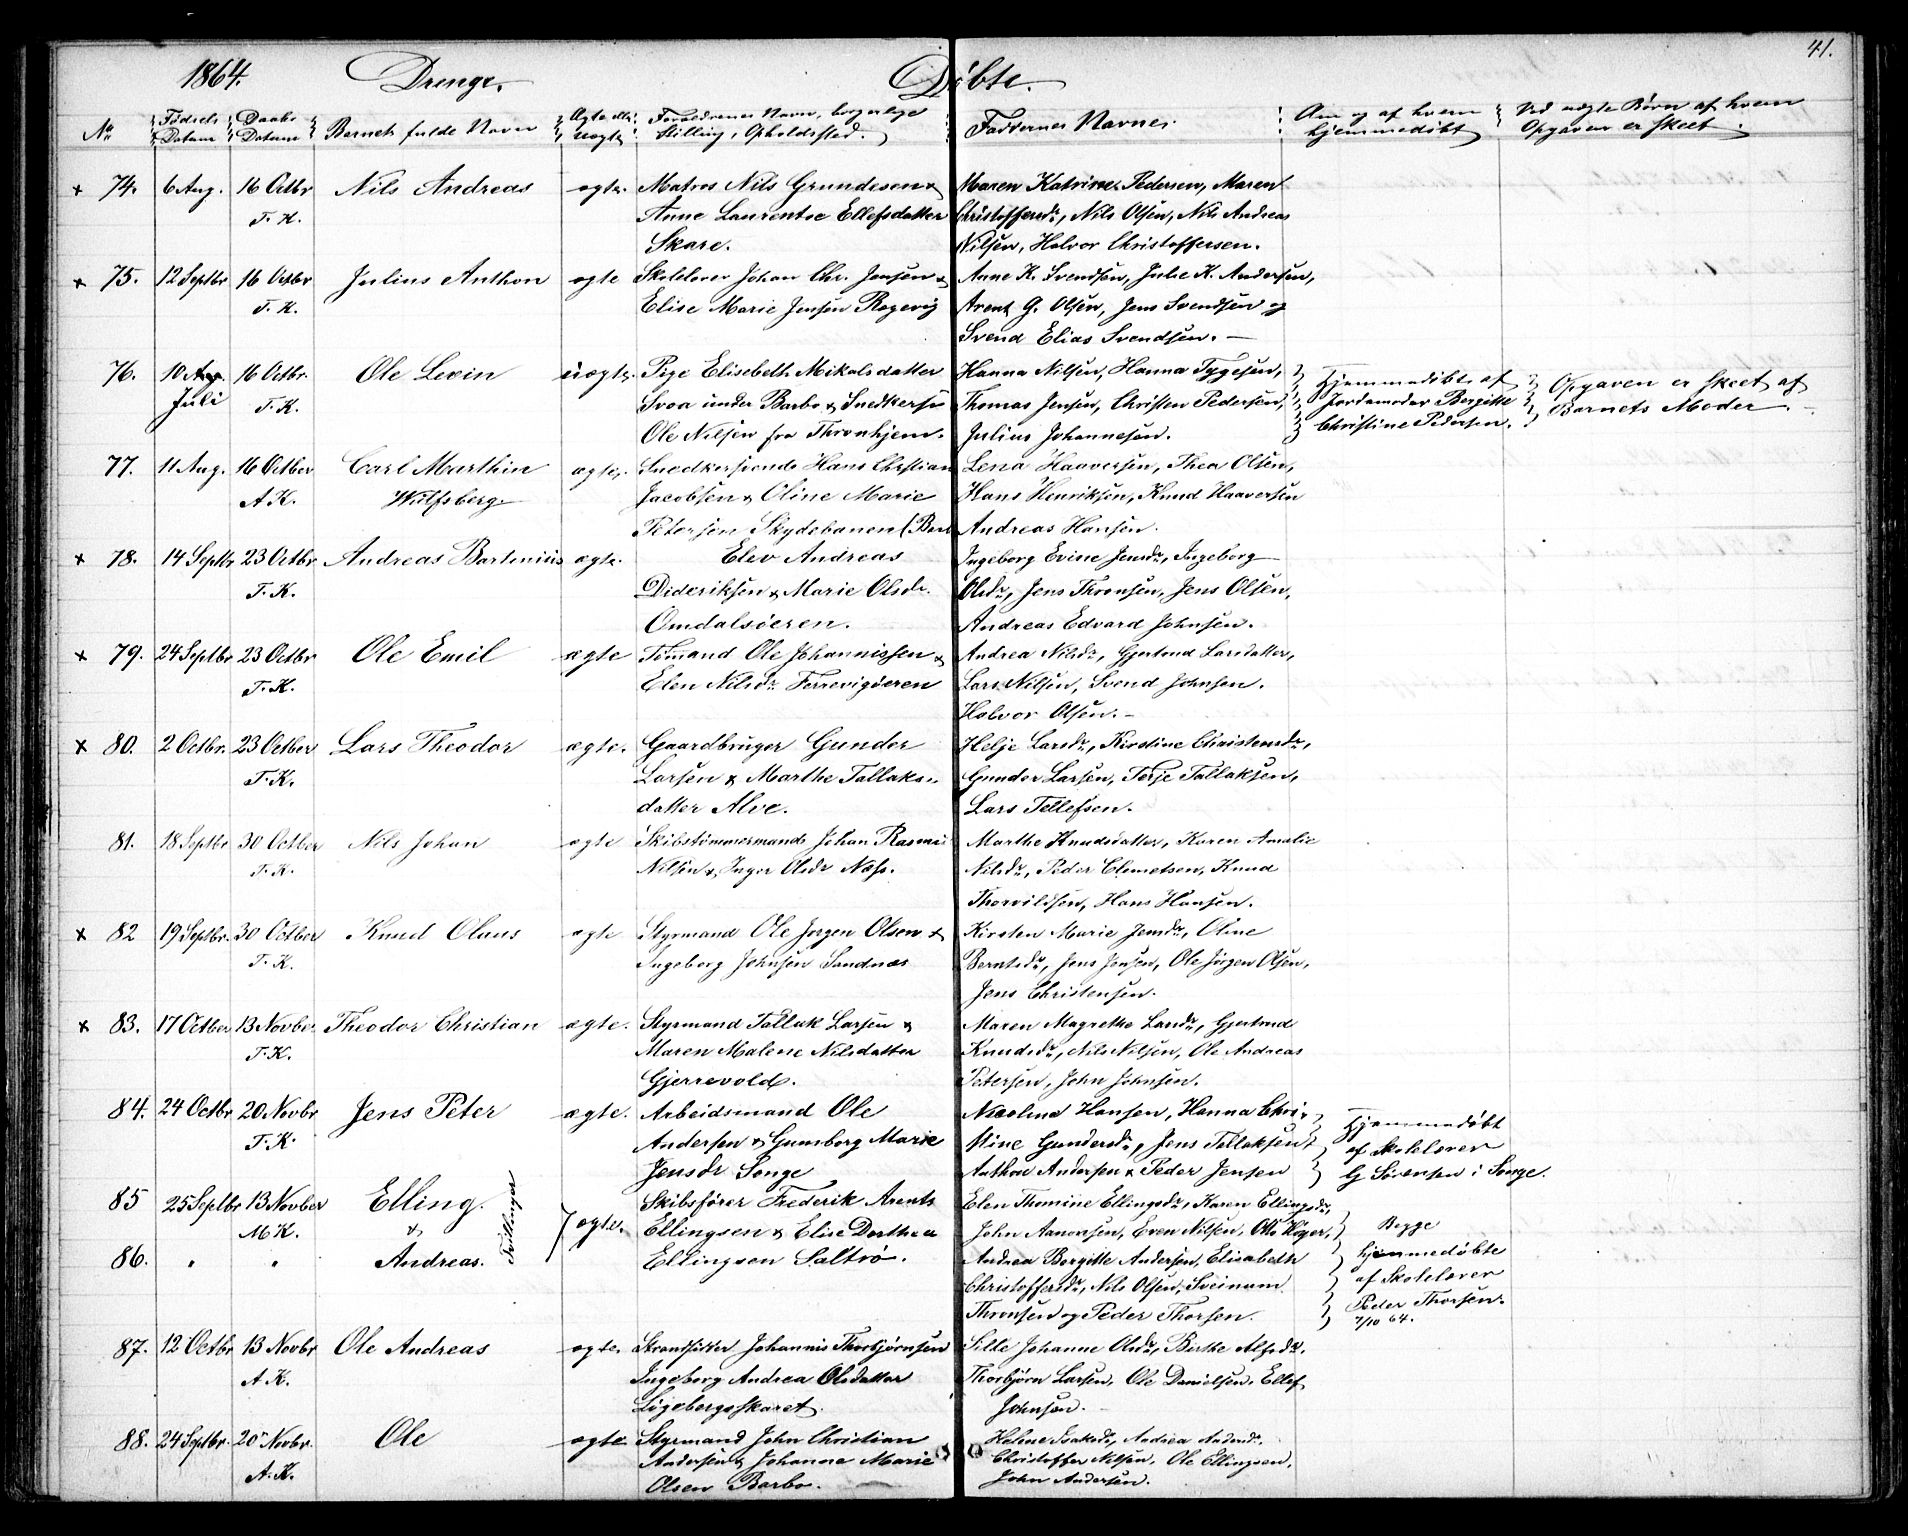 41.
1864. Drenge. Døbte.
No Fødsels Datum Daabs Datum Barnets fulde Navn Ægte ell. uægte Forældrenes Navn, borgerlige Stilling, Opholdssted. Faddernes Navne. Om og af hvem hjemmedøbt Ved uægte Børn af hvem Opgaven er skeet.
x 74. 6 Aug. 16 Octbr Nils Andreas ægte. Matros Nils Grundesen & Maren Katrine Pedersen, Maren
T. K. Anne Laurentse Ellefsdatter Christoffersdr, Nils Olsen, Nils Andreas
Skare. Nilsen, Halvor Christoffersen.
x 75. 12 Septbr 16 Octbr Julius Anthon ægte Skolelærer Johan Chr. Jensen & Anne K. Svendsen, Julie K. Andersen,
T. K. Elise Marie Jensen Rægevig Arent G. Olsen, Jens Svendsen og
Svend Elias Svendsen. —
76. 10 Juli 16 Octbr. Ole Levin uægte. Pige Elisebeth Mikalsdatter Hanna Nilsen, Hanna Tygesen, Hjemmedøbt af Opgaven er skeet af
T. K. Svoa under Barbo & Snedkersv. Thomas Jensen, Christen Pedersen, Jordemoder Bergitte Barnets Moder. —
Ole Nilsen fra Thronhjem. Julius Johannesen. Christine Pedersen.
77. 11 Aug. 16 Octber Carl Marthin ægte. Snedkersvend Hans Christian Lena Haaversen, Thea Olsen,
A K. Wulfsberg Jacobsen & Oline Marie Hans Henriksen, Knud Haaversen
Petersen Skydebanen (Barb Andreas Hansen.
x 78. 14 Septbr 23 Octbr Andreas Bartinius ægte. Elev Andreas Ingeborg Evine Jensdr, Ingeborg
T. K. Dideriksen & Marie Olsdr. Olsdr, Jens Thronsen, Jens Olsen,
Omdalsøeren. Andreas Edvard Johnsen.
x 79. 24 Septbr 23 Octbr Ole Emil ægte Tømand Ole Johannissen & Andrea Nilsdr, Gjertrud Larsdatter,
T. K. Elen Nilsdr Terrevigøeren Lars Nilsen, Svend Johnsen.
Halvor Olsen. —
x 80. 2 Octbr. 23 Octber Lars Theodor ægte. Gaardbruger Gunder Helje Larsdr, Kirstine Christensdr,
T. K. Larsen & Marthe Tallaks- Gunder Larsen, Terje Tallaksen,
datter Alve. Lars Tellefsen.
81. 18 Septbr 30 Octber Nils Johan ægte Skibstømmermand Johan Rasmus Marthe Knudsdatter, Karen Amalie
T. K. Nilsen & Inger Olsdr Næss. Nilsdr, Peder Clemetsen, Knud
Thorvildsen, Hans Hansen.
x 82 19 Septbr. 30 Octber Knud Olaus ægte Styrmand Ole Jørgen Olsen & Kirsten Marie Jensdr, Oline
T. K. Ingeborg Johnsen Sandnæs Berntsdr, Jens Jensen, Ole Jørgen Olsen,
Jens Christensen.
x 83. 17 Octber 13 Novbr. Theodor Christian ægte. Styrmand Tallak Larsen & Maren Magrethe Larsdr, Gjertrud
T. K. Maren Malene Nilsdatter Knudsdr, Nils Nilsen, Ole Andreas
Gjerrevold. Petersen, John Johnsen.
84. 24 Octbr 20 Novbr Jens Peter ægte. Arbeidsmand Ole Nicoline Hansen, Hanna Chri- Hjemmedøbt
T. K. Andersen & Gunnborg Marie stine Gundersdr, Jens Tallaksen, af Skolelærer
Jensdr Songe Anthon Andersen & Peder Jensen G Sørensen i Songe.
85 25 Septbr 13 Novber Elling. Tvillinger ægte. Skibsfører Frederik Arents Elen Thomine Ellingsdr, Karen Ellingsdr,
M K. & Ellingsen & Elise Dorthea John Aanonsen, Even Nilsen, Ole Høyer, Begge
86. " " Andreas. Ellingsen Saltrø. Andrea Bergitte Andersen, Elisabeth hjemmedøbte
Christoffersdr, Nils Olsen, Sveinum af Skolelærer
Thronsen og Peder Thorsen. Peder Thorsen.
7/10 64.
87. 12 Octbr 13 Novbr Ole Andreas ægte. Strandsidder Johannis Thorbjørnsen Sille Johanne Olsdr, Birthe Alfsdr.
A K. Ingeborg Andrea Olsdatter Thorbjørn Larsen, Ole Danielsen, Ellef
Ligebergsskaret. Johnsen.
88. 24 Septbr. 20 Novbr. Ole ægte Styrmand John Christian Helene Isaksdr, Andrea Andersdr.
A. K. Andersen & Johanne Marie Christoffer Nilsen, Ole Ellingsen,
Olsen Barbo. John Andersen.